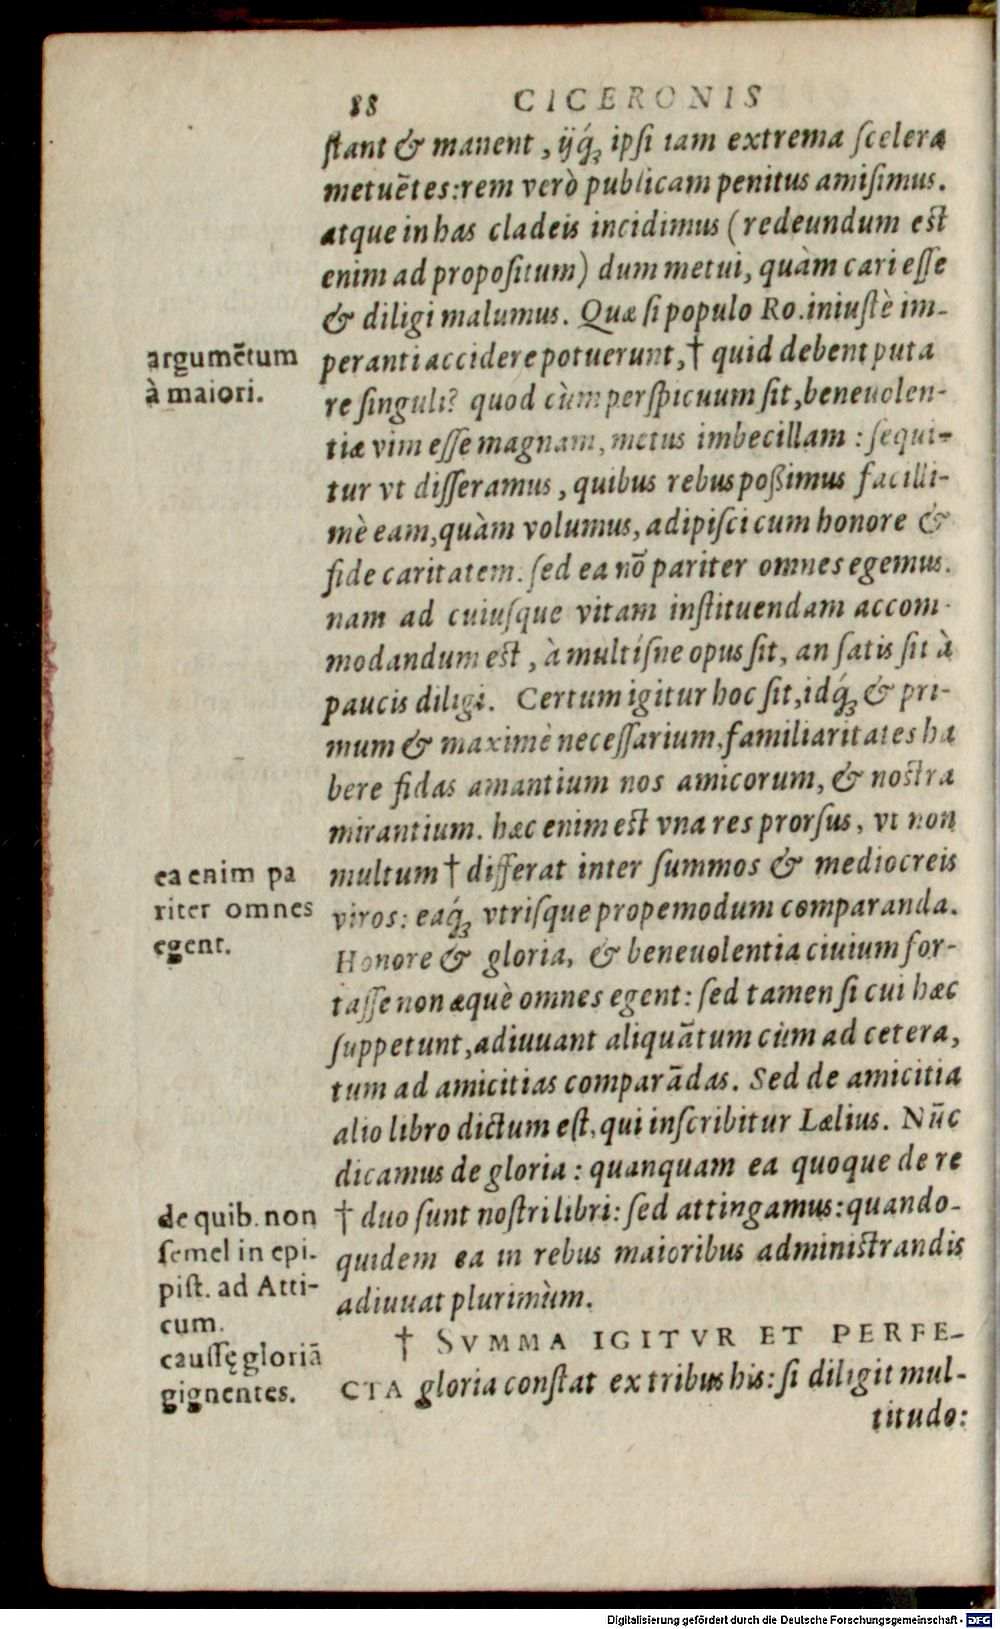 88 CICERONIS
ſtant & manent, ijq́; ipſi iam extrema ſcelera
metuẽtes: rem verò publicam penitus amiſimus.
atque in has cladeis incidimus (redeundum eſt
enim ad propoſitum) dum metui, quàm cari eſſe
& diligi malumus. Quæ ſi populo Ro. iniuſtè im-
peranti accidere potuerunt, † quid debent puta
re ſinguli? quod cùm perſpicuum ſit, beneuolen-
tiæ vim eſſe magnam, metus imbecillam: ſequi-
tur vt diſſeramus, quibus rebus poßimus facilli-
mè eam, quàm volumus, adipiſci cum honore &
fide caritatem. ſed ea nõ pariter omnes egemus.
nam ad cuiuſque vitam inſtituendam accom-
modandum eſt, à multiſne opus ſit, an ſatis ſit à
paucis diligi. Certum igitur hoc ſit, idq́; & pri-
mum & maximè neceſſarium, familiaritates ha
bere fidas amantium nos amicorum, & noſtra
mirantium. hæc enim eſt vna res prorſus, vt non
multum † differat inter ſummos & mediocreis
viros: eaq́; vtriſque propemodum comparanda.
Honore & gloria, & beneuolentia ciuium for-
taſſe non æquè omnes egent: ſed tamen ſi cui hæc
ſuppetunt, adiuuant aliquãtum cùm ad cetera,
tum ad amicitias comparãdas. Sed de amicitia
alio libro dictum eſt, qui inſcribitur Lælius. Nũc
dicamus de gloria: quanquam ea quoque de re
† duo ſunt noſtri libri: ſed attingamus: quando-
quidem ea in rebus maioribus adminiſtrandis
adiuuat plurimùm.
† SVMMA IGITVR ET PERFE-
CTA gloria conſtat ex tribus his: ſi diligit mul-
titudo:
argumẽtum
à maiori.
ea enim pa
riter omnes
egent.
de quib. non
ſemel in epi-
piſt. ad Atti-
cum.
cauſſę gloriã
gignentes.
Digitalisierung gefördert durch die Deutsche Forschungsgemeinschaft - DFG